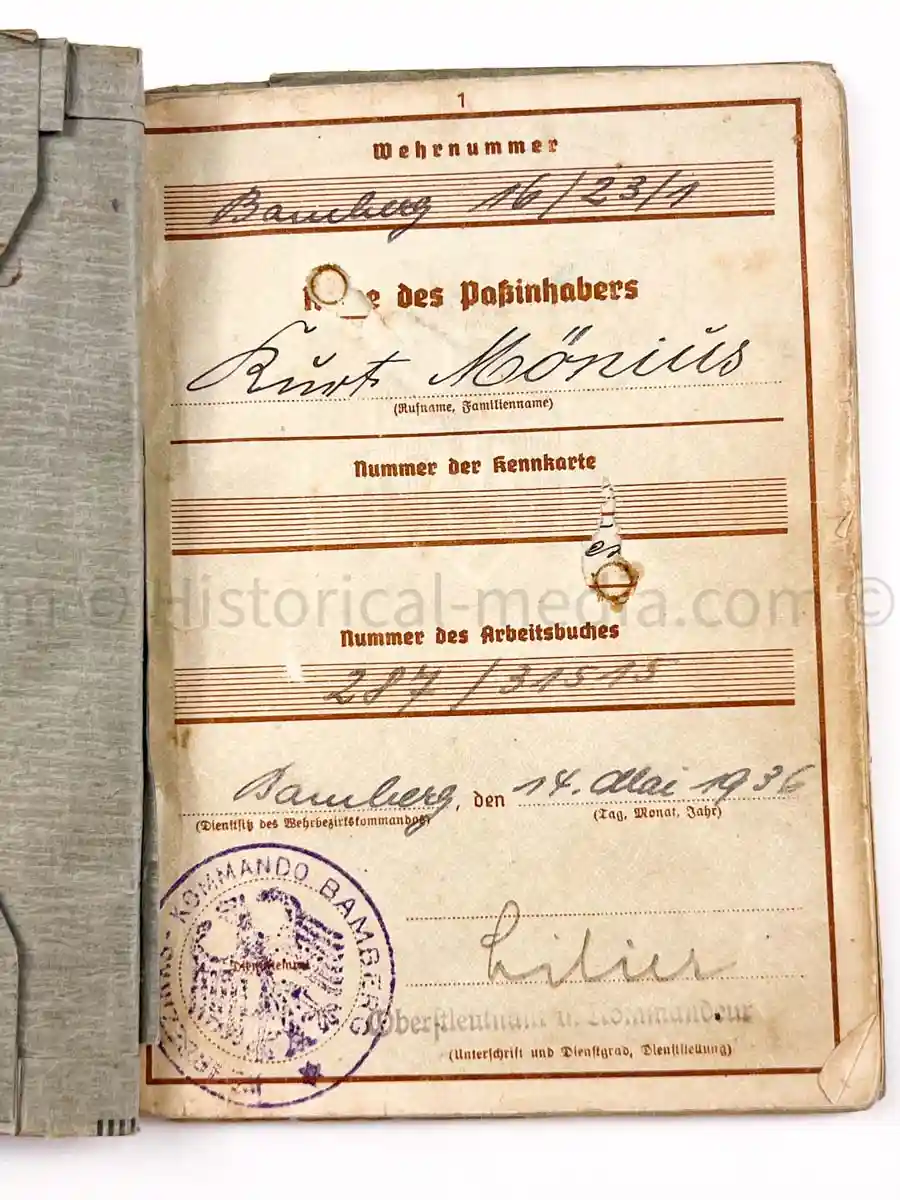 1
Wehrnummer
Bamberg 16/23/1
des Paßinhabers
Kurt Mönius
(Rufname, Familienname)
Nummer der Kennkarte
es
m © Historical-media.com ©
Nummer des Arbeitsbuches
287/31515
Bamberg, den 14. Mai 1936
(Dienstsitz des Wehrbezirkskommandos)
(Tag, Monat, Jahr)
KOMMANDO BAMBERG
Oberstleutnant u. Kommandeur
(Unterschrift und Dienstgrad, Dienststellung)